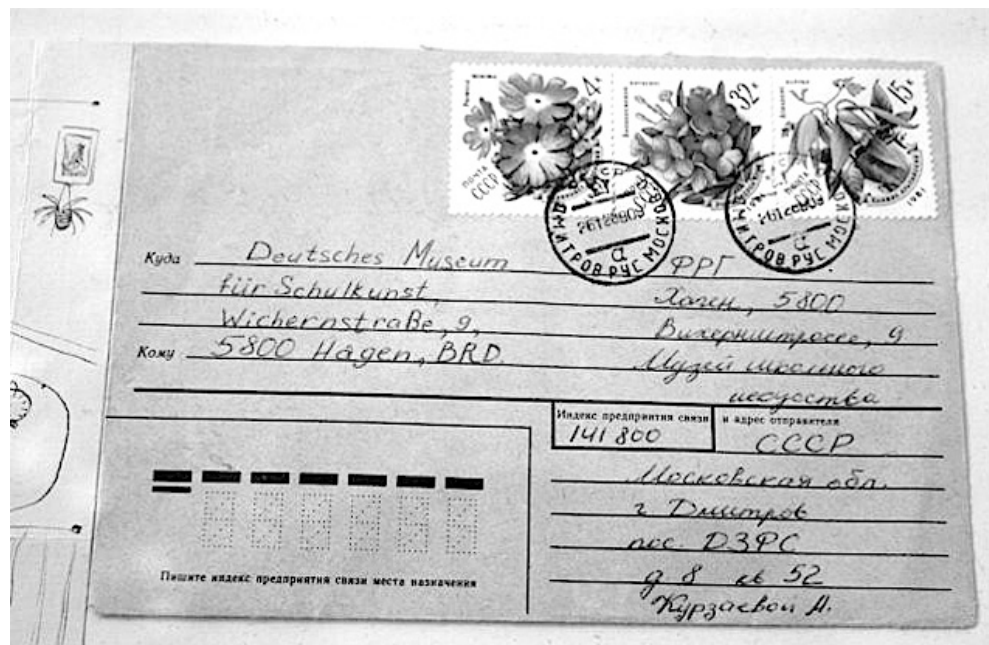 4к
32к
15к
ПОЧТА
СССР
1981
ДМИТРОВ РУС МОСКОВ
261288 09
а
ДМИТРОВ РУС МОСКОВ
261288 09
а
Куда Deutsches Museum
für Schulkunst,
Wichernstraße, 9,
Кому 5800 Hagen, BRD.
ФРГ
Хаген, 5800
Вихернштрассе, 9
Музей школьного
искусства
Индекс предприятия связи и адрес отправителя
141800
СССР
Московская обл.
г Дмитров
пос. ДЗФС
д 8 кв 52
Курзаевой А.
Пишите индекс предприятия связи места назначения